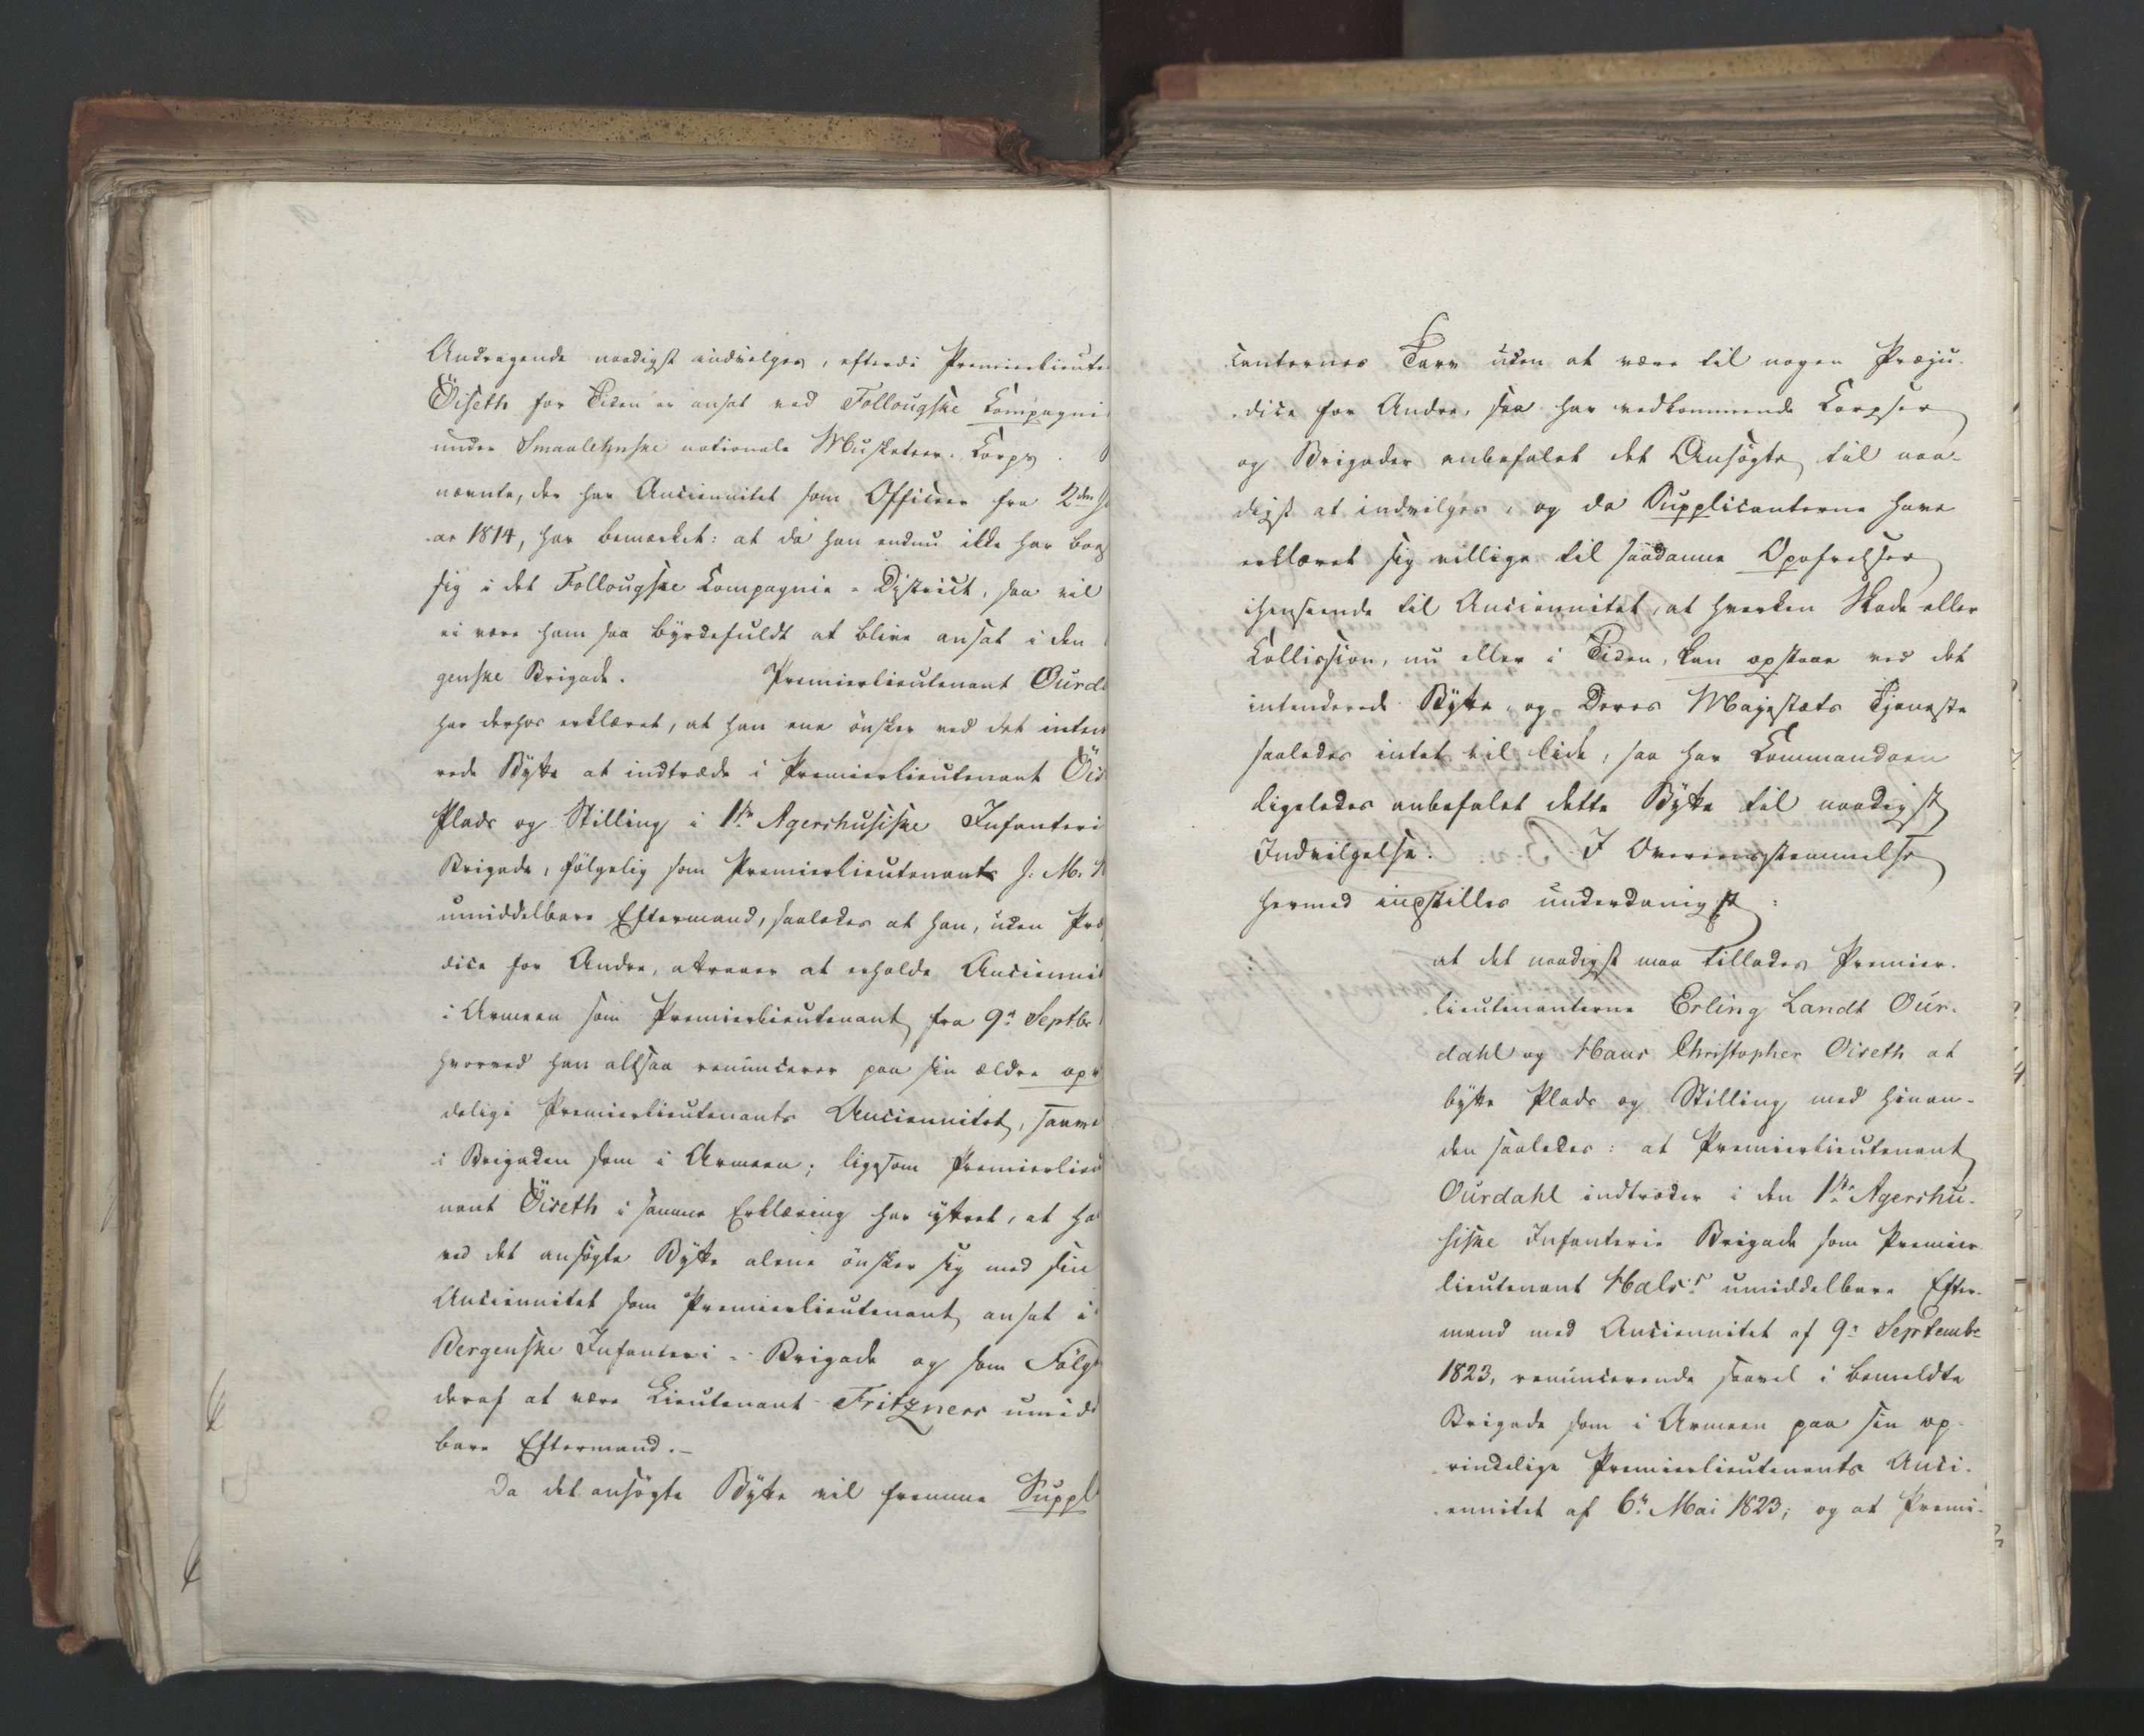 Andragende naadigst indvilges, efterdi Premierlieute
Öiseth for Tiden er ansat ved Follougske Compagni
under Smaalehnske nationale Musketeer-Corps.
nævnte, der har Anciennitet som Officeer fra 2den
ar 1814, har bemærket: at da han endnu ikke har bos
sig i det Follougske Compagnie-District, saa vil
ei være ham saa byrdefuldt at blive ansat i den
genske Brigade. Premierlieutenant Ourd
har derhos erklæret, at han ene ønsker ved det inten
rede Bytte at indtræde i Premierlieutenant Öis
Plads og Stilling i 1ste Agershusiske Infanteri
Brigade, følgelig som Premierlieutenant J. M. H
umiddelbare Eftermand, saaledes at han, uden Præ
dice for Andre, attraaer at erholde Anciennit
i Armeen som Premierlieutenant fra 9de Septbr
hvorved han altsaa renuncerer paa sin ældre opr
delige Premierlieutenants Anciennitet, saave
i Brigaden som i Armeen; ligesom Premierlieu
nant Öiseth i samme Erklæring har yttret, at ha
ved det ansøgte Bytte alene ønsker sig med sin
Anciennitet som Premierlieutenant ansat i
Bergenske Infanteri-Brigade og som Følg
deraf at være Lieutenant Fritzners umidd
bare Eftermand.-
Da det ansøgte Bytte vil fremme Suppl
canternes Tarv uden at være til nogen Præju-
dice for Andre, saa har vedkommende Corpser
og Brigader anbefalet det Ansøgte til naa-
digst at indvilges, og da Supplicanterne have
erklæret sig villige til saadanne Opofrelser
ihenseende til Anciennitet, at hverken Skade eller
Collission, nu eller i Tiden, kan opstaae ved det
intenderede Bytte, og Deres Majestæts Tjeneste
saaledes intet vil lide, saa har Commandoen
ligeledes anbefalet dette Bytte til naadigst
Indvilgelse. I Overeensstemmelse
hermed indstilles underdanigst:
at det naadigst maa tillades Premier-
lieutenanterne Erling Landt Our-
dahl og Hans Christopher Oiseth at
bytte Plads og Stilling med hinan-
den saaledes: at Premierlieutenant
Ourdahl indtræder i den 1ste Agershu-
siske Infanterie Brigade som Premier-
lieutenant Hals's umiddelbare Efter-
mand med Anciennitet af 9de Septembr
1823, renuncerende saavel i bemeldte
Brigade som i Armeen paa sin op-
rindelige Premierlieutenants Anci-
ennitet af 6te Mai 1823; og at Premi-